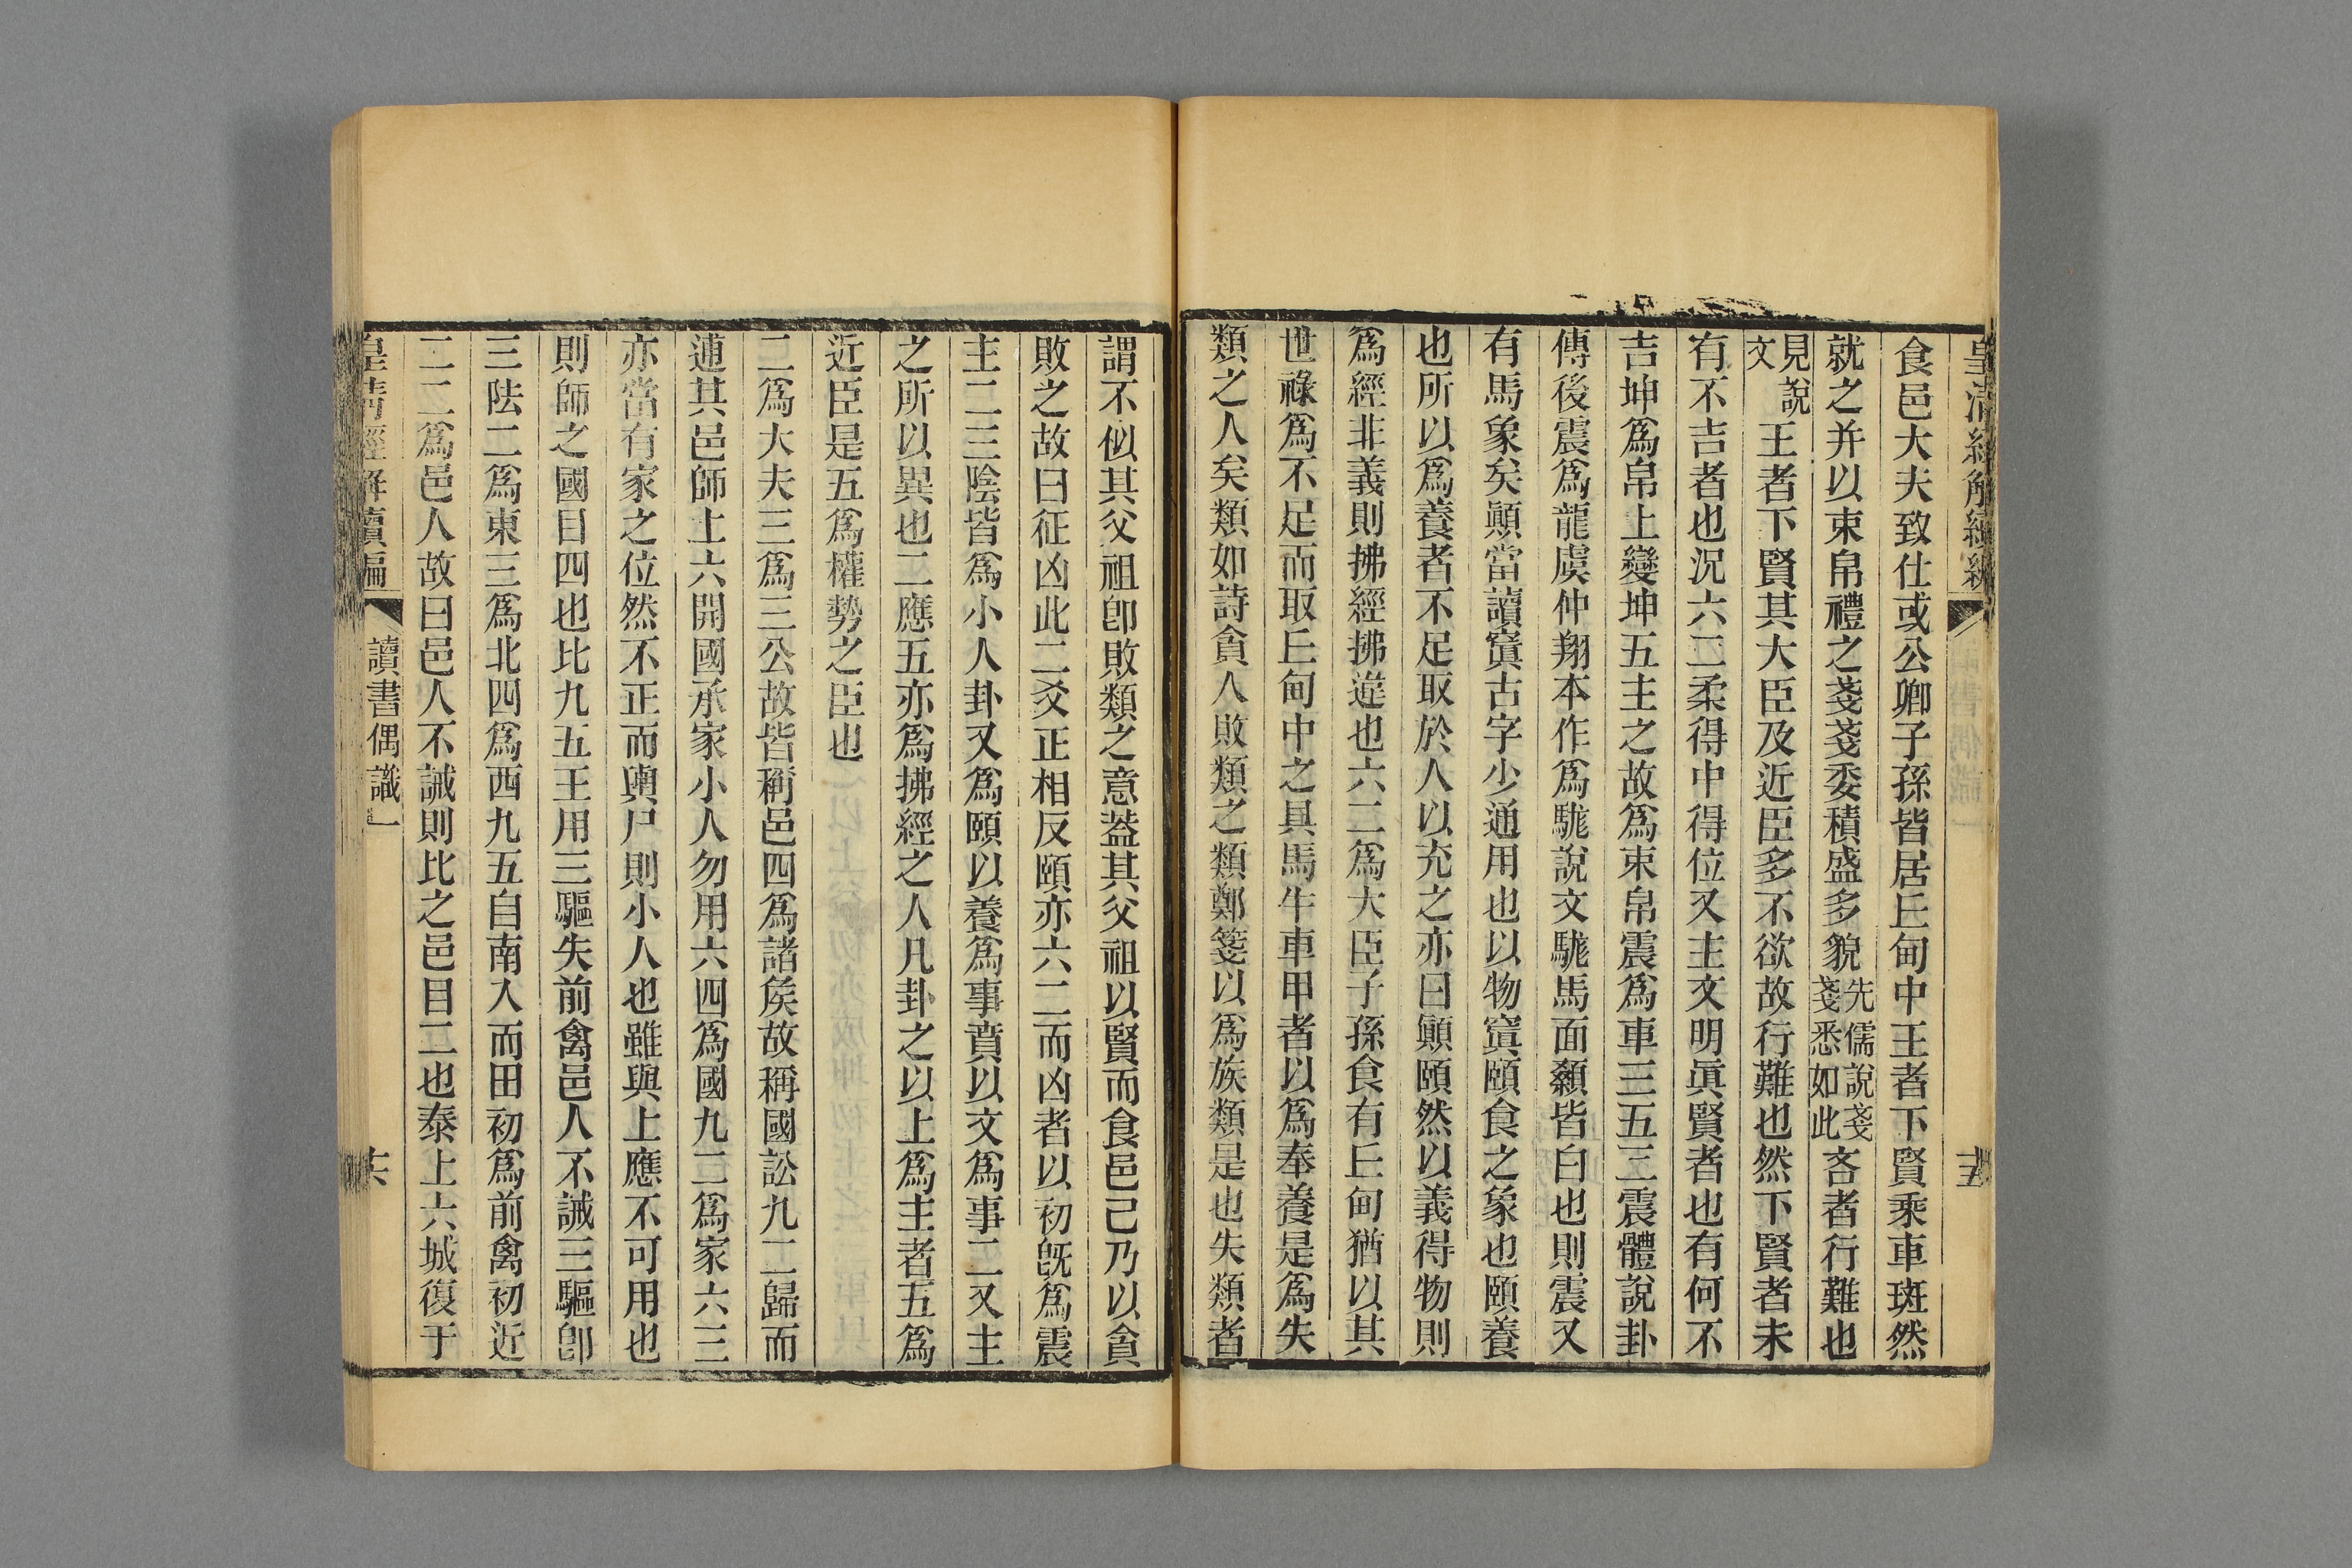 皇清經解續編
十五
食邑大夫致仕或公卿子孫皆居丘甸中王者下賢乘車斑然
就之并以束帛禮之戔戔委積盛多貌先儒說戔戔悉如此吝者行難也
見說文王者下賢其大臣及近臣多不欲故行難也然下賢者未
有不吉者也況六二柔得中得位又主文明眞賢者也有何不
吉坤爲帛上變坤五主之故爲束帛震爲車三五互震體說卦
傳後震爲龍虞仲翔本作爲駹說文駹馬面顙皆白也則震又
有馬象矣顚當讀窴古字少通用也以物窴頤食之象也頤養
也所以爲養者不足取於人以充之亦曰顚頤然以義得物則
爲經非義則拂經拂違也六二爲大臣子孫食有丘甸猶以其
世祿爲不足而取丘甸中之具馬牛車甲者以爲奉養是爲失
類之人矣類如詩貪人敗類之類鄭箋以爲族類是也失類者
謂不似其父祖卽敗類之意葢其父祖以賢而食邑己乃以貪
敗之故曰征凶此二爻正相反頤亦六二而凶者以初旣爲震
主二三陰皆爲小人卦又爲頤以養爲事賁以文爲事二又主
之所以異也二應五亦爲拂經之人凡卦之以上爲主者五爲
近臣是五爲權勢之臣也
二爲大夫三爲三公故皆稱邑四爲諸矦故稱國訟九二歸而
逋其邑師上六開國承家小人勿用六四爲國九二爲家六三
亦當有家之位然不正而輿尸則小人也雖與上應不可用也
則師之國目四也比九五王用三驅失前禽邑人不誡三驅卽
三阹二爲東三爲北四爲西九五自南入而田初爲前禽初近
二二爲邑人故曰邑人不誡則比之邑目二也泰上六城復于
皇清經解續編
讀書偶識一
十六